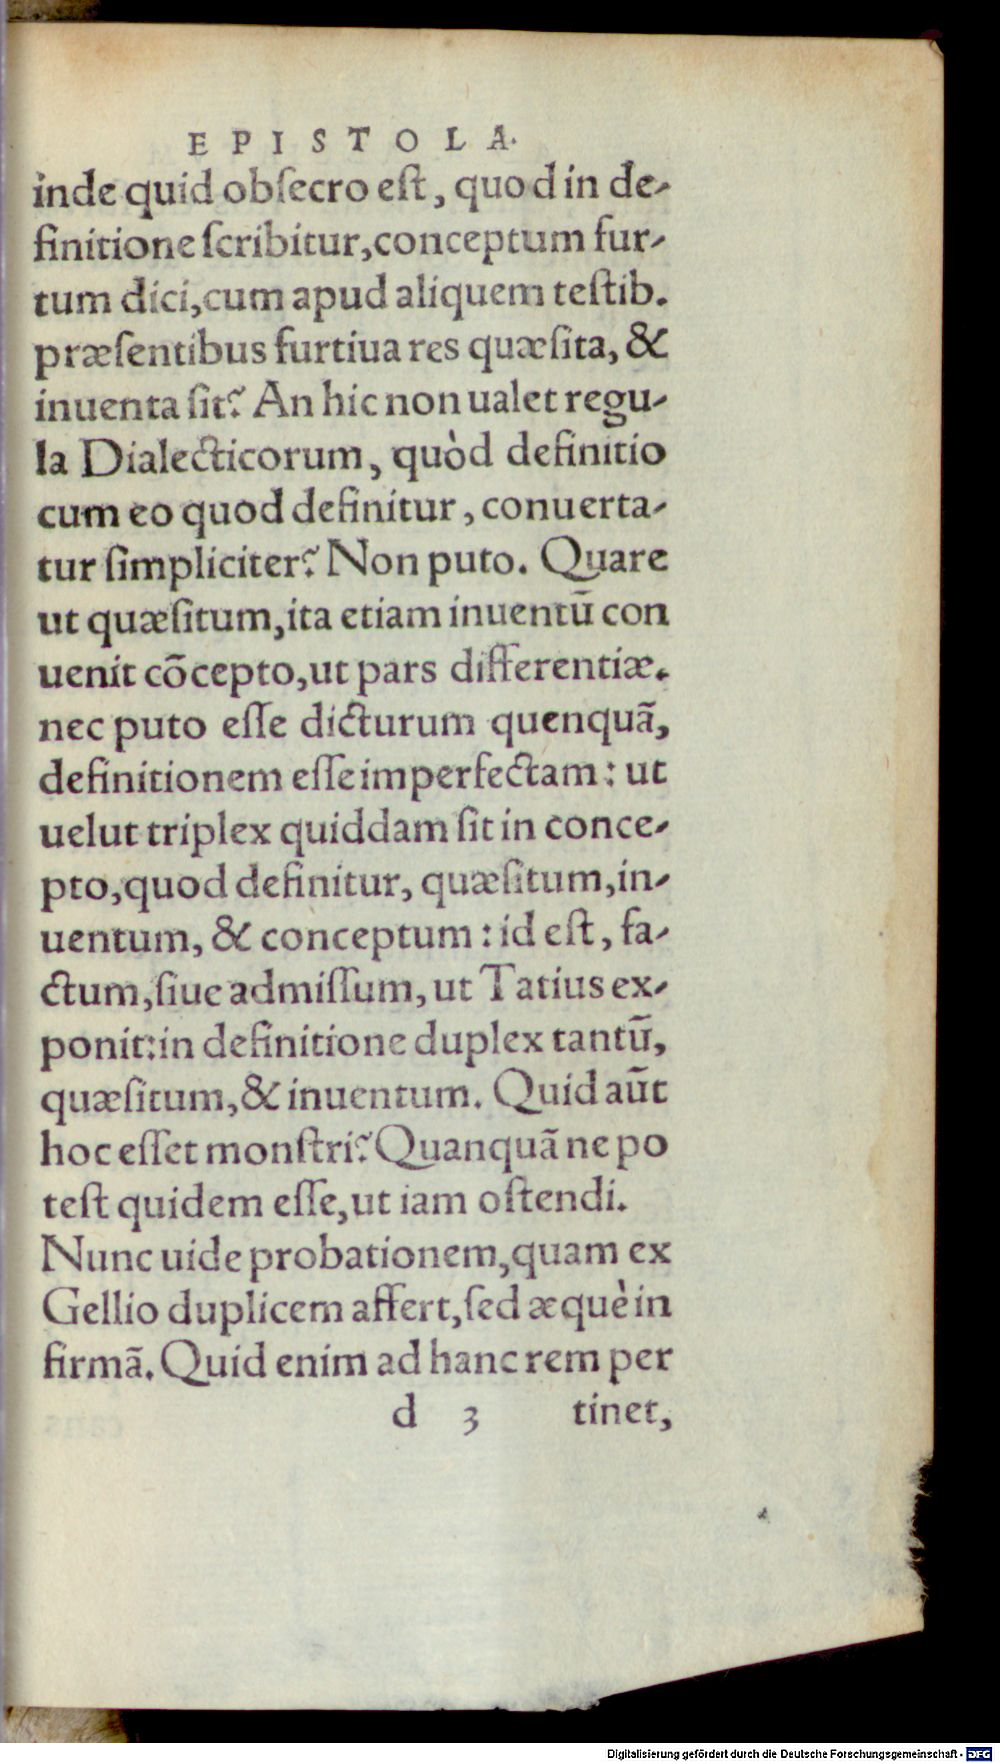 EPISTOLA.
inde quid obſecro eſt, quod in de-
finitione ſcribitur, conceptum fur-
tum dici, cum apud aliquem teſtib.
præſentibus furtiua res quæſita, &
inuenta ſit? An hic non ualet regu-
la Dialecticorum, quòd definitio
cum eo quod definitur, conuerta-
tur ſimpliciter? Non puto. Quare
ut quæſitum, ita etiam inuentū con
uenit cōcepto, ut pars differentiæ.
nec puto eſſe dicturum quenquã,
definitionem eſſe imperfectam: ut
uelut triplex quiddam ſit in conce-
pto, quod definitur, quæſitum, in-
uentum, & conceptum: id eſt, fa-
ctum, ſiue admiſſum, ut Tatius ex-
ponit: in definitione duplex tantū,
quæſitum, & inuentum. Quid aūt
hoc eſſet monſtri? Quanquã ne po
teſt quidem eſſe, ut iam oſtendi.
Nunc uide probationem, quam ex
Gellio duplicem affert, ſed æquè in
firmã. Quid enim ad hanc rem per
d 3 tinet,
Digitalisierung gefördert durch die Deutsche Forschungsgemeinschaft - DFG